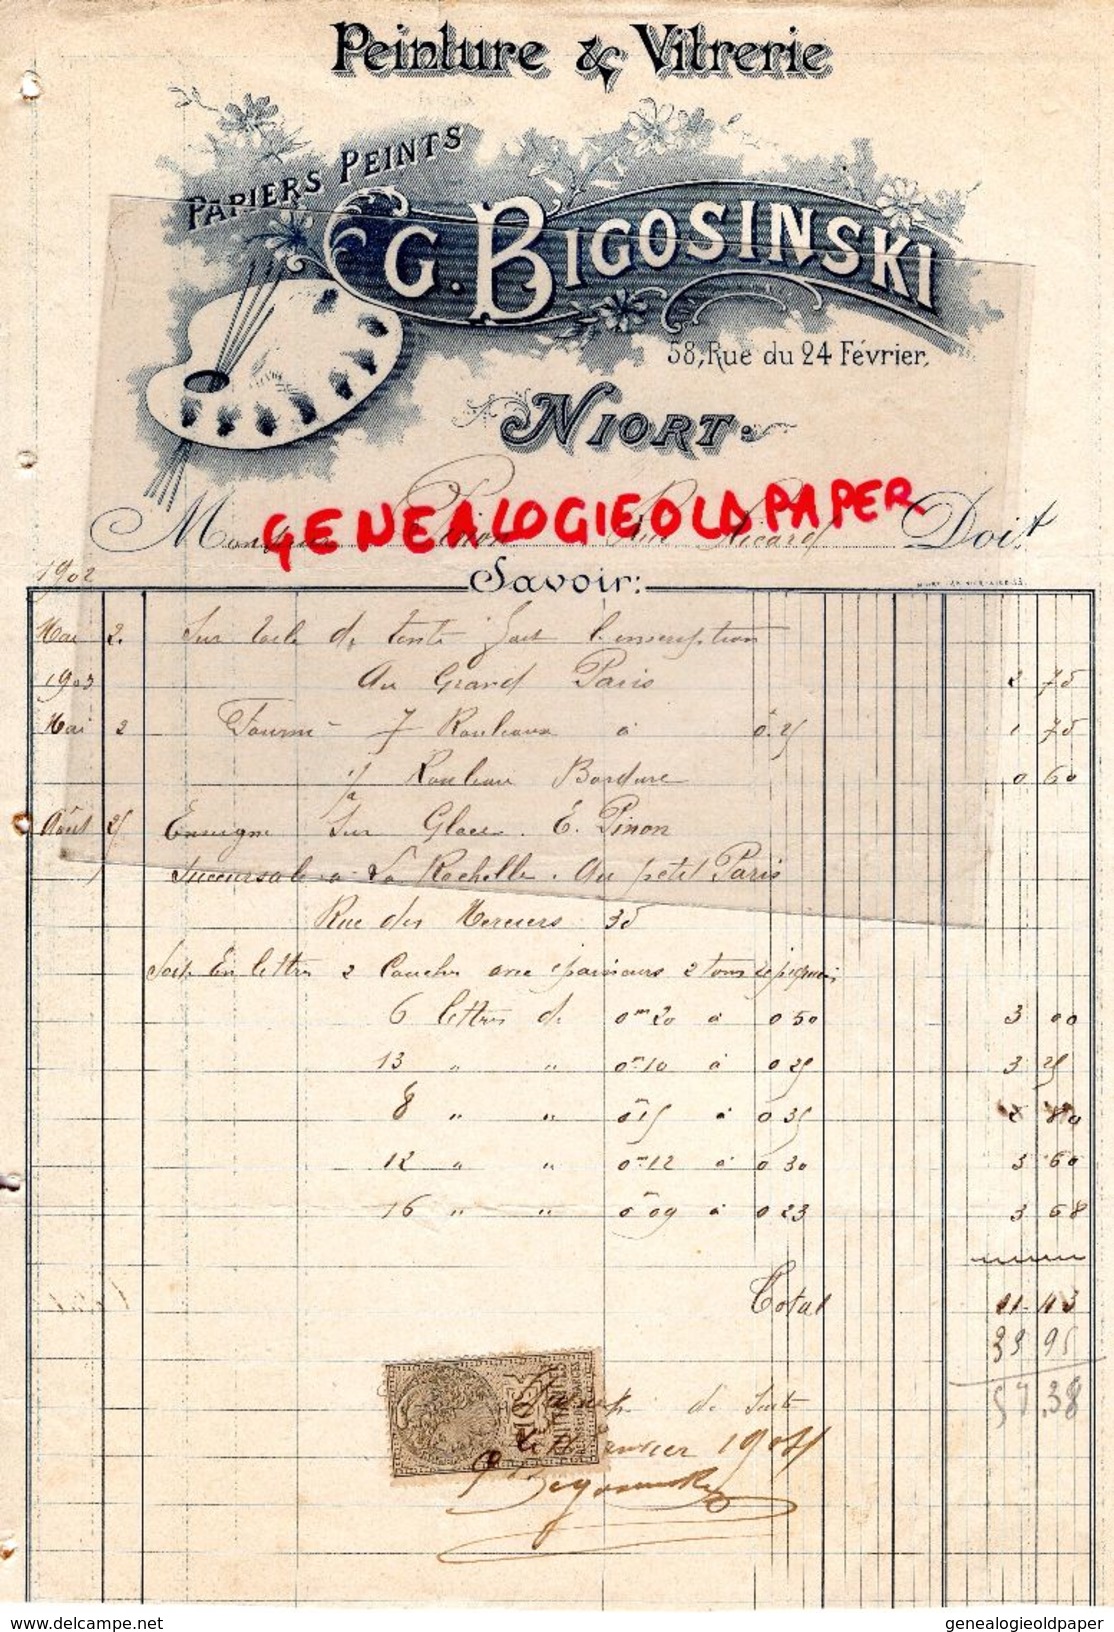 Peinture & Vitrerie
PAPIERS PEINTS
G. BIGOSINSKI
58, Rue du 24 Février,
NIORT.
GENEALOGIEOLDPAPER
Monsieur Pinon Rue Ricard Doit
1902
Savoir:
Mai 2. Sur toile de tente fait l'inscription
1903 Au Grand Paris 2 75
Mai 2 Fourni 7 Rouleaux à 0.25 1 75
Rouleau Bordure 0 60
Août 25 Enseigne sur Glace. E. Pinon
Succursale à La Rochelle. Au petit Paris
Rue des Merciers 35
Soit En lettres 2 Couches avec épaisseurs 2 tons
6 lettres de 0m20 à 0 50 3 00
13 " " 0m10 à 0 25 3 25
8 " " 0m15 à 0 35 2 80
12 " " 0m12 à 0 30 3 60
16 " " 0m09 à 0 23 3 68
Total 21.43
57.38
de suite
Janvier 1904
Bigosinski
www.delcampe.net genealogieoldpaper